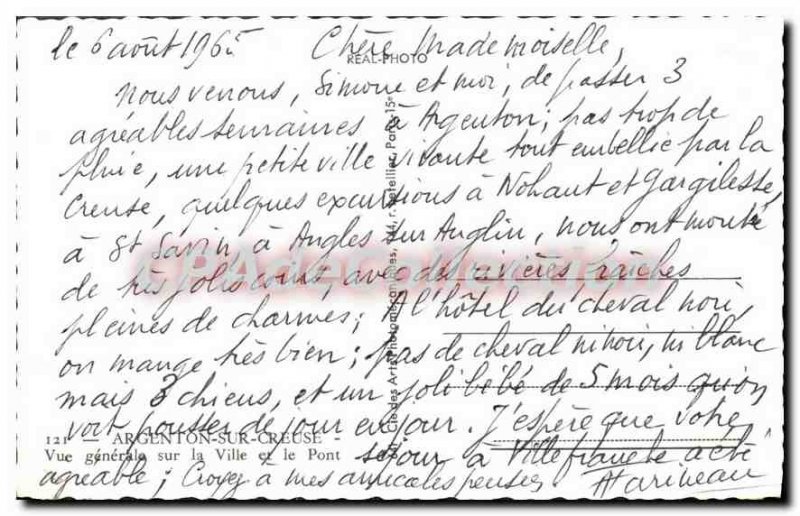 le 6 août 1965 Chère Mademoiselle,
REAL-PHOTO
Nous venons, Simone et moi, de passer 3
agréables semaines à Argenton; pas trop de
pluie, une petite ville vivante tout embellie par la
Creuse, quelques excursions à Nohaut et Gargilesse,
à St Savin, à Angles sur Anglin, nous ont montré
de très jolis coins, avec des rivières fraîches
pleines de charmes; A l'hôtel du cheval noir,
on mange très bien; pas de cheval ni noir, ni blanc
mais 3 chiens, et un joli bébé de 5 mois qu'on
voit pousser de jour en jour. J'espère que votre
121 — ARGENTON-SUR-CREUSE -
Vue générale sur la Ville et le Pont
séjour à Villefranche a été
agréable; Croyez à mes amicales pensées
CPAdeCollection.com